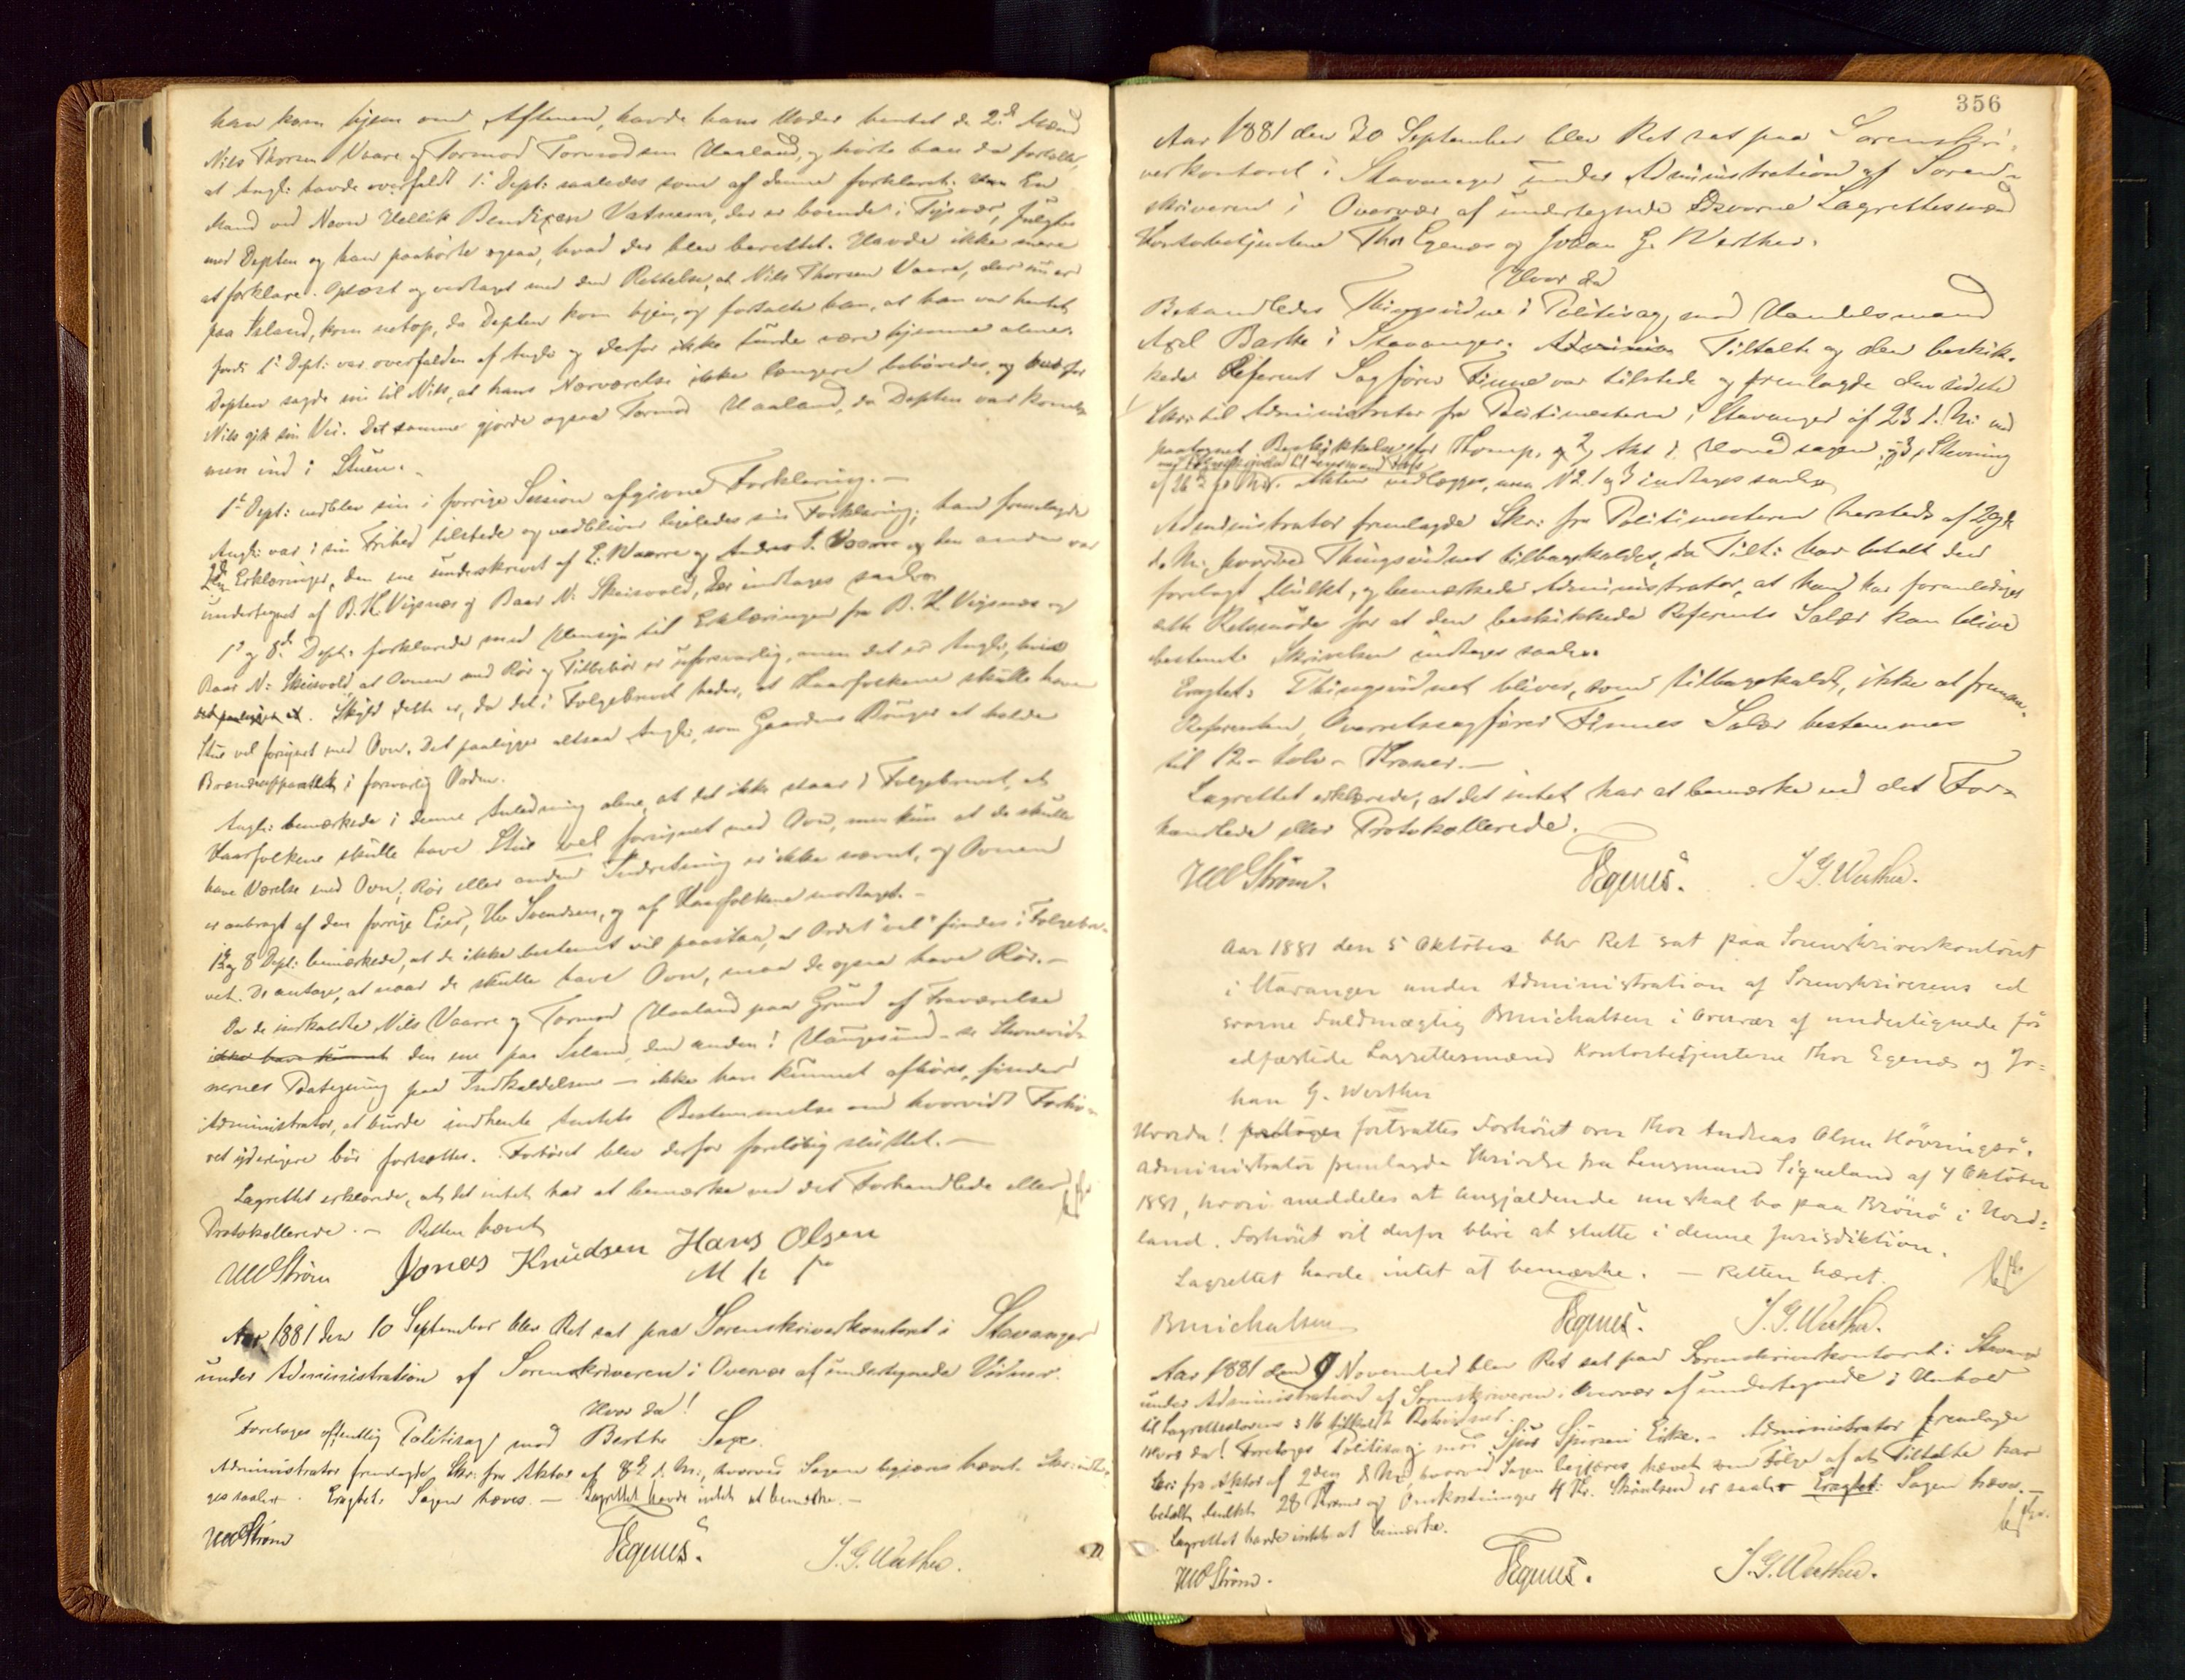 han kom hjem om Aftenen, havde hans Moder hentet de 2de Mænd
Nils Thorsen Vaare og Tormod Tormodsen Haaland, og hørte han da fortalte,
at Angl: havde overfaldt 1ste Dept: saaledes som af denne forklaret. En
Mand ved Navn Bendixen Vatnem, der er boende i Tysvær, fulgte
med Depten og han paahørte ogsaa, hvad der blev berettet. Havde ikke mere
at forklare. Oplæst og vedtaget med den Rettelse, at Nils Thorsen Vaare, der nu er
paa Island, kom netop, da Depten kom hjem, og fortalte han, at han var hentet
fordi 1ste Dept: var overfalden af Angl: og derfor ikke turde være hjemme alene.
Depten sagde nu til Nils, at hans Nærværelse ikke længere behøvedes, og
Nils gik sin Vei. Det samme gjorde ogsaa Tormod Haaland, da Depten var kom-
men ind i Stuen.-
1ste Dept: vedblev sin i forrige Session afgivne Forklaring.-
Angl: var i sin Frihed tilstede og vedbliver ligeledes sin Forklaring; han fremlagde
2de Erklæringer, den ene underskrevet af E. Vaarre og Andreas I. Vaarre og den anden var
undertegnet af B. H. Vigsnæs og Baar N. Skeisvold, der indtages saal.
1ste og 8de Dept: forklarede med Hensyn til Erklæringen fra B. H. Vigsnæs og
Baar N: Skeisvold, at Ovnen med Rør og Tilbehør er uforsvarlig, men det er Angl:, hvis
. Skyld dette er, da det i Følgebrevet heder, at Kaarfolkene skulle have
Stue vel forsynet med Ovn. Det paaligger altsaa Angl:, som Gaardens Bruger at holde
Brændeapparatet i forsvarlig Orden.
Angl: bemærkede i denne Anledning alene, at det ikke staar i Følgebrevet, at
Kaarfolkene skulle have Stue vel forsynet med Ovn, men kun at de skulle
have Værelse med Ovn; Rør eller anden Indretning er ikke nævnt, og Ovnen
er anbragt af den forrige Eier, Ole Svendsen, og af Kaarfolkene modtaget.-
1ste og 8 Dept: bemærkede, at de ikke bestemt vil paastaa, at Ordet "vel" findes i Følgebre-
vet. De antage, at naar de skulle have Ovn, maa de ogsaa have Rør.-
Da de indkaldte Nils Vaarre og Tormod Haaland paa Grund af Fraværelse
ikke have kunnet den ene paa Island, den anden i Haugesund - se Stævnevid-
nernes Paategning paa Indkaldelsen - ikke har kunnet afhøres, finder
Administrator, at burde indhente Amtets Bestemmelse om hvorvidt Forhø-
ret yderligere bør fortsættes. Forhøret blev derfor foreløbig sluttet.-
Lagrettet erklærede, at det intet har at bemærke ved det Forhandlede eller
Protokollerede.- Retten hævet
Strøm Jonas Knudsen Hans Olsen
M P
Aar 1881 den 10 September blev Ret sat paa Sorenskriverkontoret i Stavanger
under Administration af Sorenskriveren i Overvær af undertegnede Vidner.
Hvor da!
Foretoges offentlig Politisag mod Berthe
Administrator fremlagde Skr: fra Aktor af 8de d. M:, hvorved Sagen begjæres hævet. Skr: indta-
ges saal. Eragtet: Sagen hæves.- Lagrettet havde intet at bemærke.-
Strøm TEgenæs. J. G. Werther.
356
Aar 1881 den 30 September blev Ret sat paa Sorenskri-
verkontoret i Stavanger under Administration af Soren-
skriveren i Overvær af undertegnede Edsvorne Lagrettesmænd
Kontorbetjentene Thor Egenæs og Johan G. Werther.
Hvor da
Behandledes Thingsvidne i Politisag mod Handelsmand
Axel Barke i Stavanger. Tiltalte og den beskik-
kede Referent Sagfører Finne var tilstede og fremlagde den sidste
Skr: til Administrator fra Politimesteren i Stavanger af 23 d. M: med
paategnet Beskikkelse for Komp. og 2, Akt i Hovedsagen, og 3, Stevning
af 26de Aktens vedlægges, men N2. 1 og 3 indtages saal.
Administrator fremlagde Skr: fra Politimesteren hersteds af 29de
d. M:, hvorved Thingsvidnet tilbagekaldes, da Tilt: har betalt den
forelagt Mulkt, og bemærkede Administrator, at han har foranlediget
dette Retsmøde for at den beskikkede Referents Salær kan blive
bestemt. Skrivelsen indtages saal.
Eragtet: Thingsvidnet bliver, som tilbagekaldt, ikke at fremme.
Referenten, Overretssagfører Finnes Salær bestemmes
til 12 - tolv - Kroner.-
Lagrettet erklærede, at det intet har at bemærke ved det For-
handlede eller Protokollerede.
Strøm. TEgenæs. J. G. Werther.
Aar 1881 den 5 Oktober blev Ret sat paa Sorenskriverkontoret
i Stavanger under Administration af Sorenskriverens ed
svorne Fuldmægtig BMichalsen i Overvær af undertegnede for
edfæstede Lagrettesmænd Kontorbetjentene Thor Egenæs og Jo-
han G. Werther
Hvorda! fortsattes Forhøret over Thor Andreas Olsen Høvringsø.
Administrator fremlagde Skrivelse fra Lensmand Sigveland af 4 Oktober
1881, hvori meddeles at Angjældende nu skal bo paa Brønø i Nord-
land. Forhøret vil derfor blive at slutte i denne Jurisdiktion.
Lagrettet havde intet at bemærke. - Retten hævet.
BMichalsen TEgenæs. J. G. Werther.
Aar 1881 den 9 November blev Ret sat paa Sorenskriverkontoret i Stavanger
under Administration af Sorenskriveren i Overvær af undertegnede i Henhold
til Lagretteslovens § 16 tilkaldte Retsvidner.
Hvor da! Foretoges Politisag mod Sjur Eike.- Administrator fremlagde
Skr: fra Aktor af 2den d. M:, hvorved Sagen begjæres hævet som Følge af at Tiltalte har
betalt Mulkt 28 Kroner og Omkostninger 4 Kr. Skrivelsen er saal. Eragtet: Sagen hæves.-
Lagrettet havde intet at bemærke.
Strøm. TEgenæs. J. G. Werther.